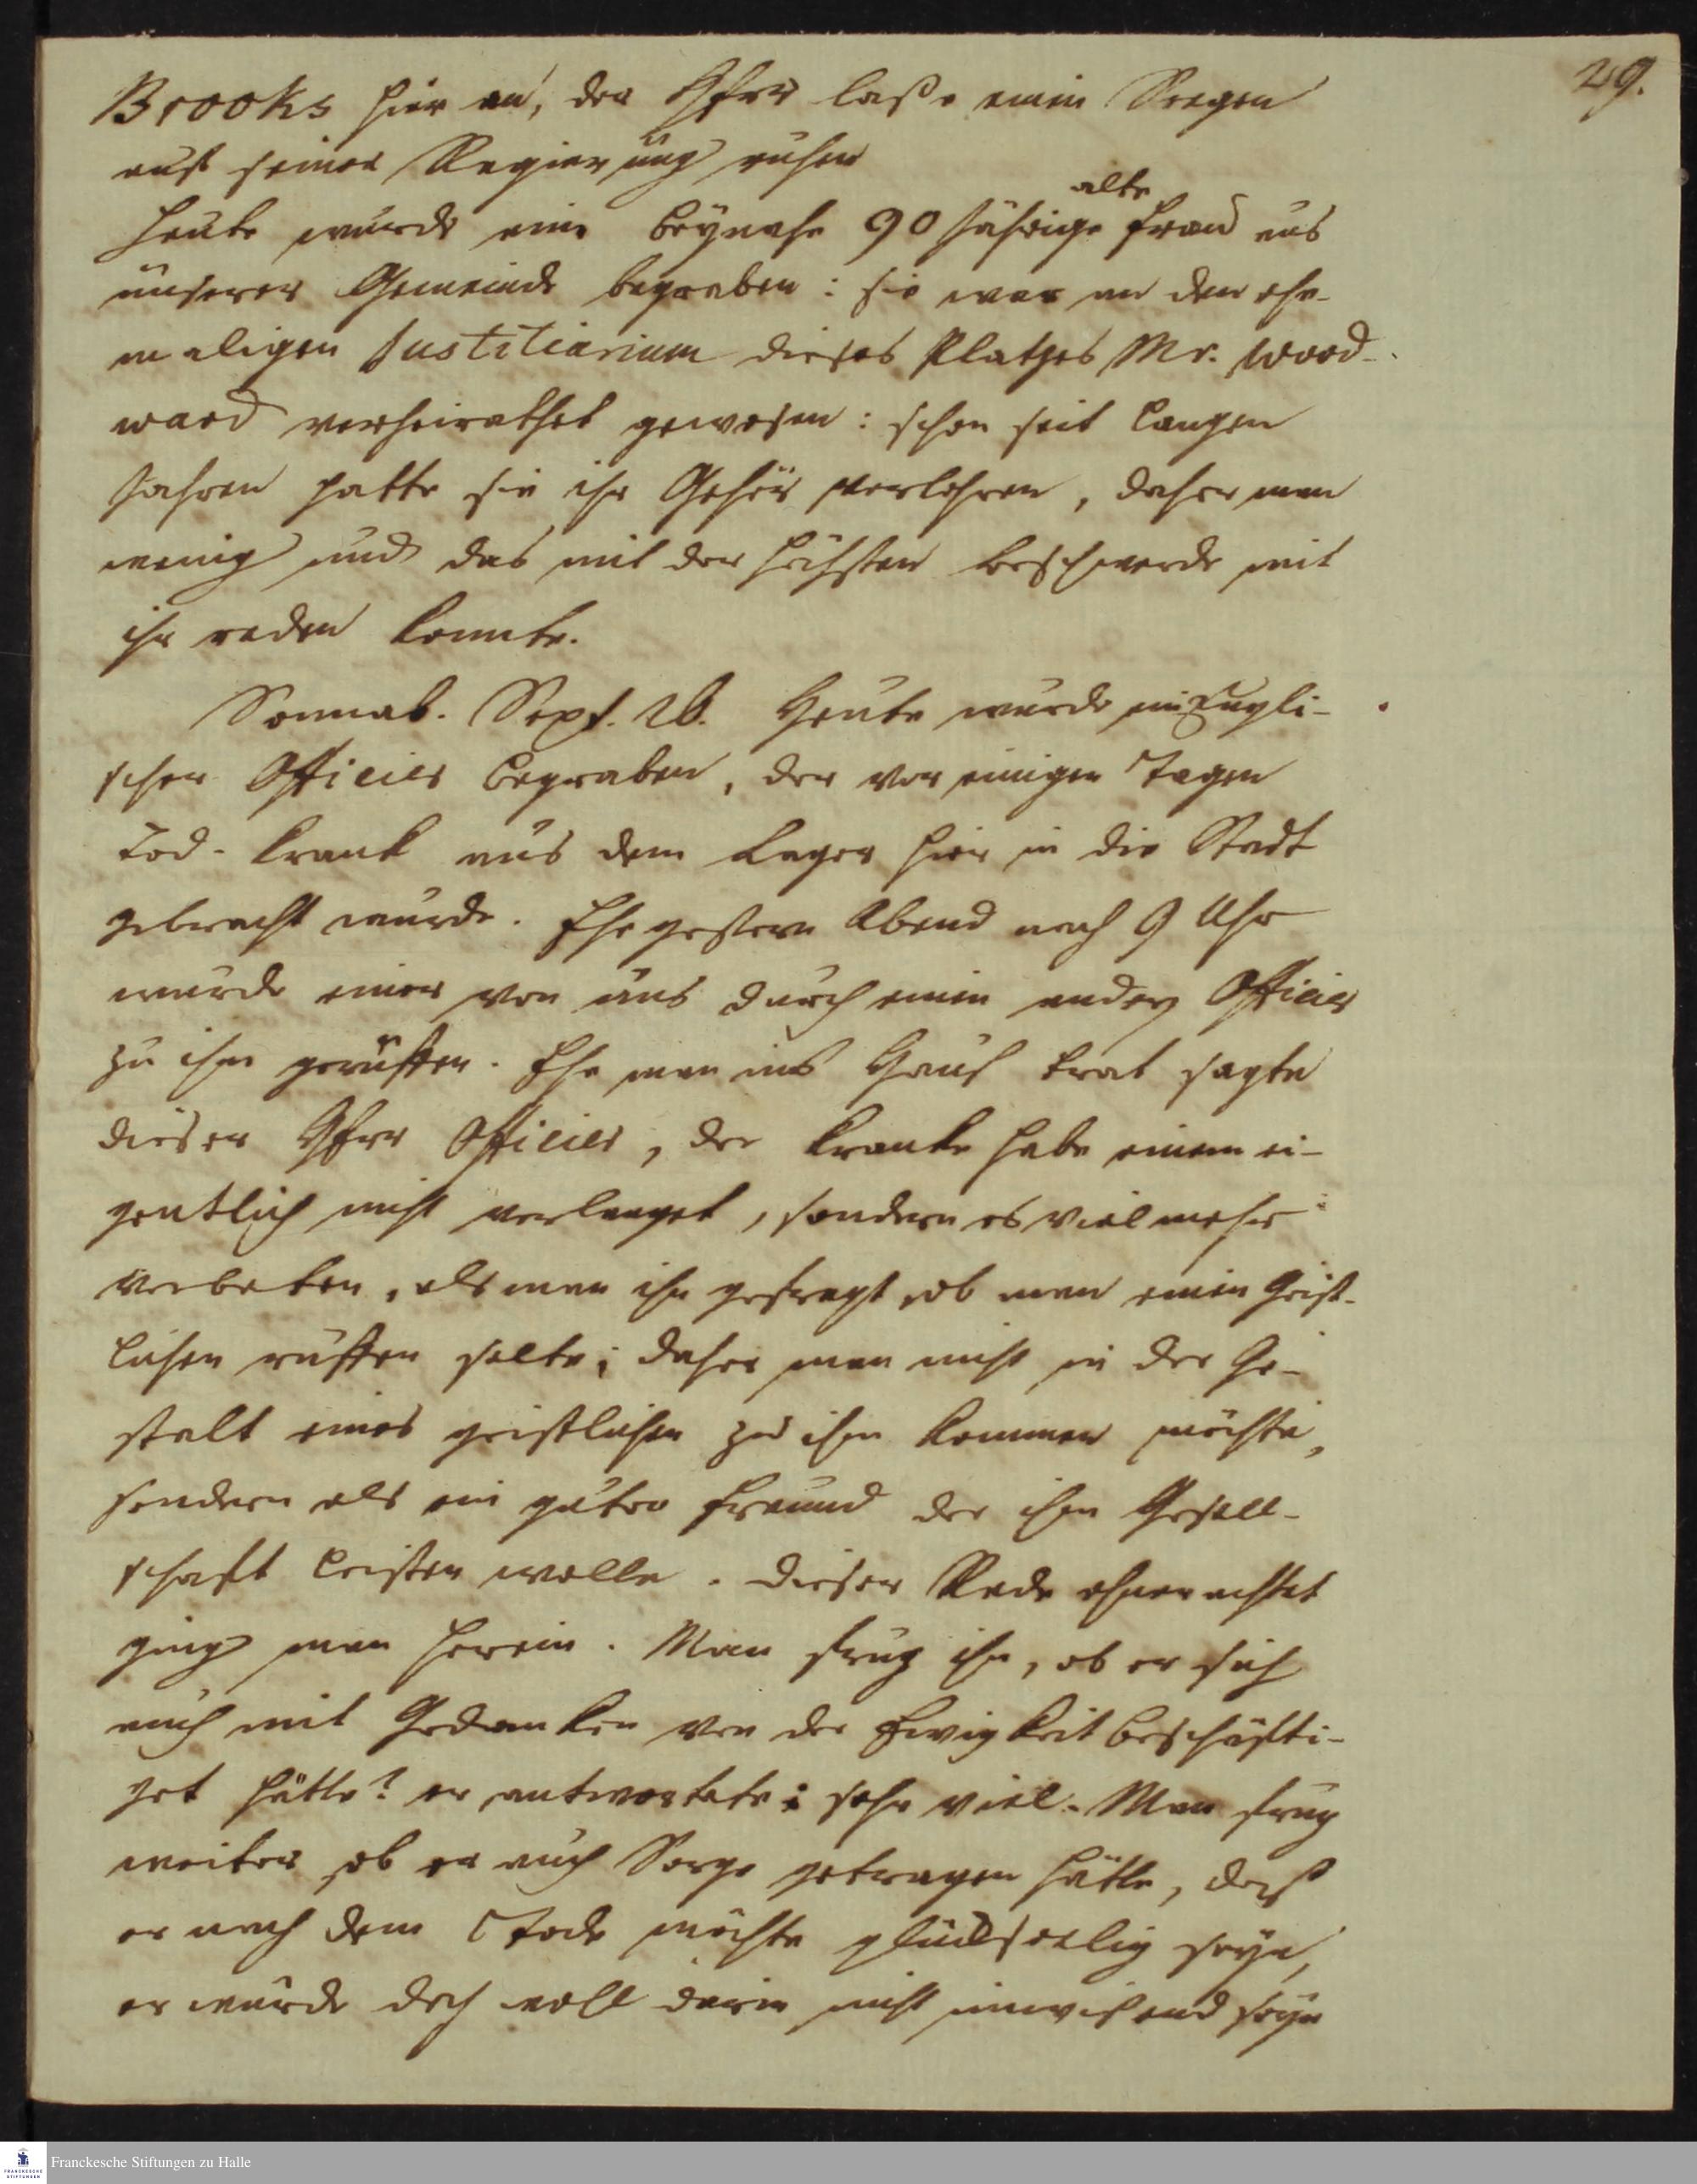 29.
Brooks hier an, der Herr laße einen Seegen
auf seiner Regierung ruhen
Heute wurde eine beynahe 90 jährige alte Frau aus
unserer Gemeinde begraben: sie war an den ehe-
maligen Justitiarium dieses Platzes Mr. Wood-
ward verheirathet gewesen: schon seit langen
Jahren hatte sie ihr Gehör verlohren, daher man
wenig und das mit der höchsten Beschwerde mit
ihr reden konnte.
Sonnab. Sept. 26. Heute wurde ein Engli-
scher Officier begraben, der vor einigen Tagen
Tod-krank aus dem Lager hier in die Stadt
gebracht wurde. Ehegestern Abend nach 9 Uhr
wurde einer von uns durch einen andern Officier
zu ihm geruffen. Ehe man ins Hauß trat sagte
dieser Herr Officier, der Kranke habe einem ei-
gentlich nicht verlanget, sondern es vielmehr
verbeten, als man ihn gefragt, ob man einen Geist-
lichen ruffen solte; daher man nicht in der Ge-
stalt eines geistlichen zu ihm kommen möchte,
sondern als ein guter Freund der ihm Gesell-
schaft leisten wolle. Dieser Rede ohnerachtet
ging man herein. Man frug ihn, ob er sich
auch mit Gedanken von der Ewigkeit beschäfti-
get hätte? er antwortete: sehr viel. Man frug
weiter ob er auch Sorge getragen hätte, daß
er nach dem Tode möchte glückseelig seyn,
er würde doch woll darin nicht unwißend seyn
Franckesche Stiftungen zu Halle
FRANCKESCHE STIFTUNGEN